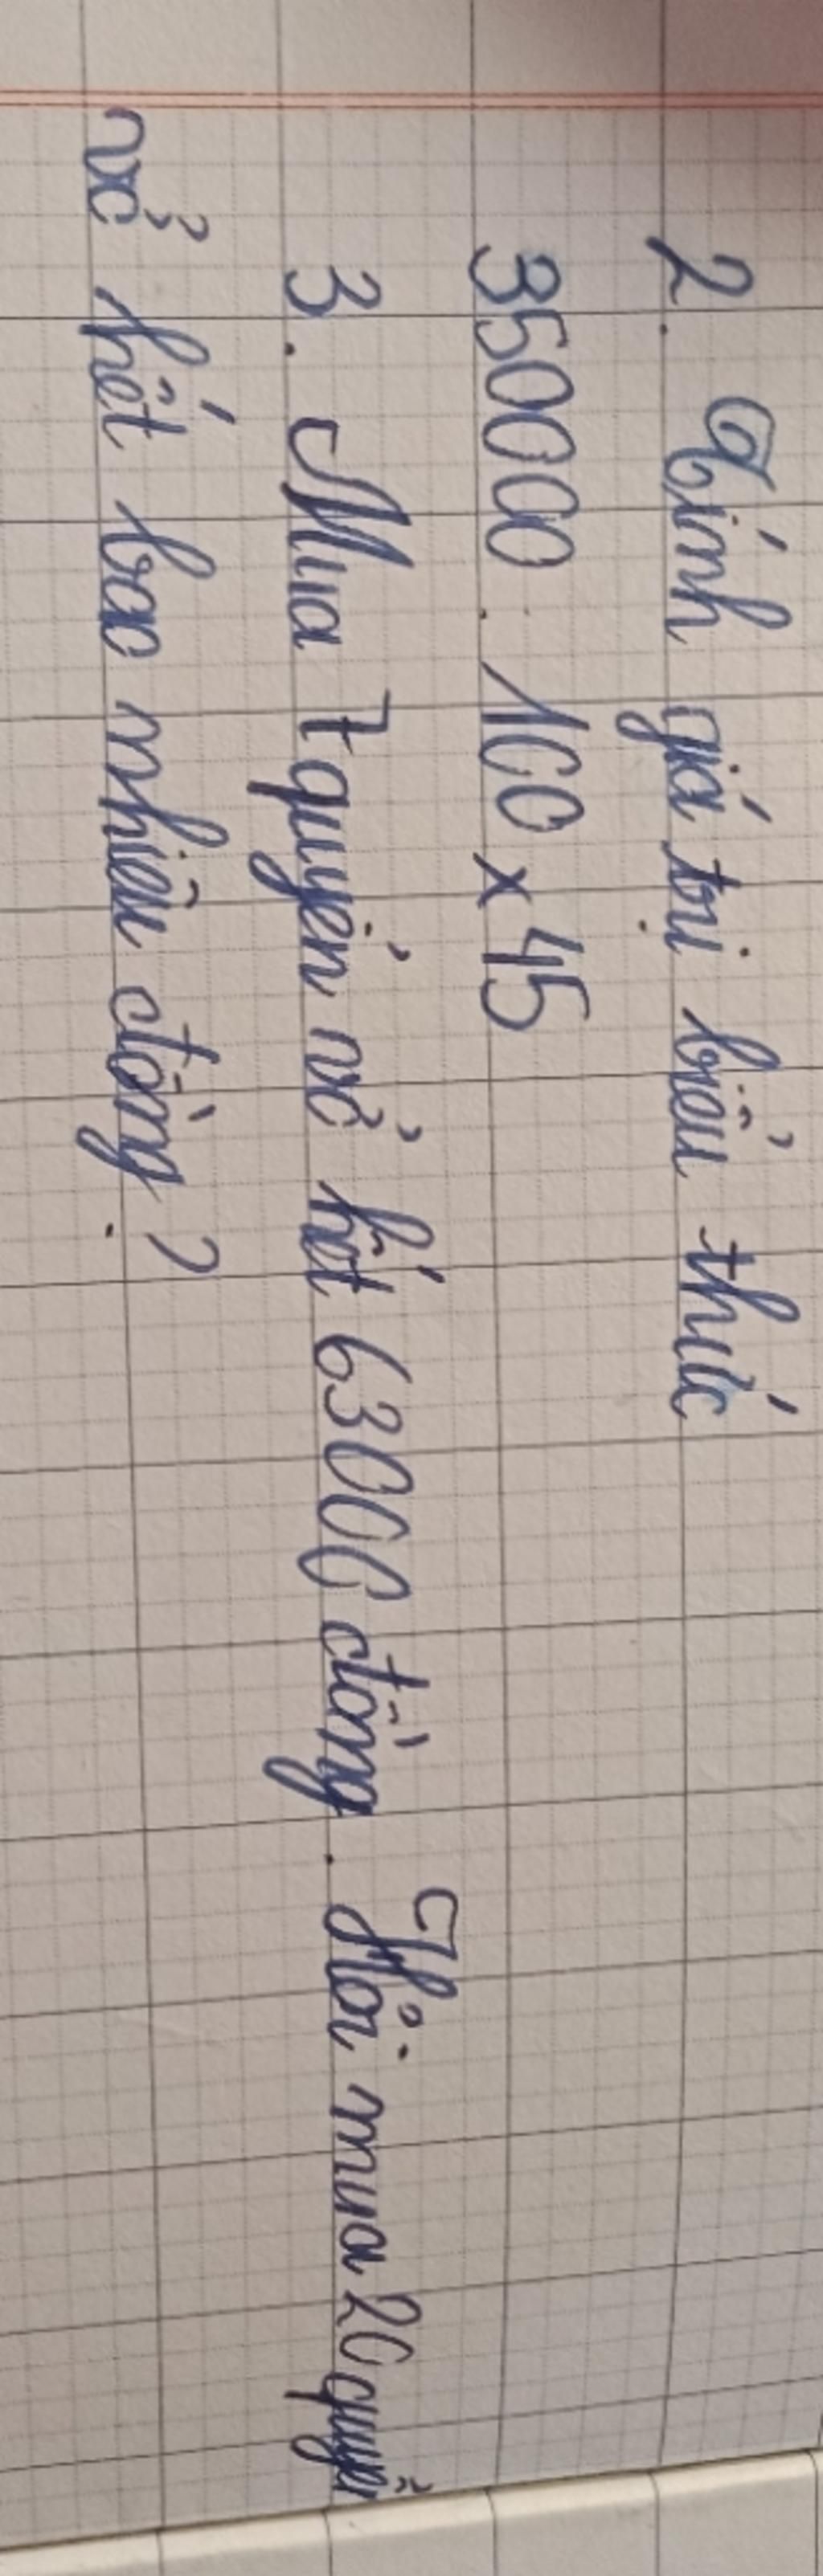 2. Tính giá trị biểu thức
35000 . 100 x 45
3. Mua 7 quyển vở hết 63000 đồng. Hỏi mua 20 quyển
vở hết bao nhiêu đồng?